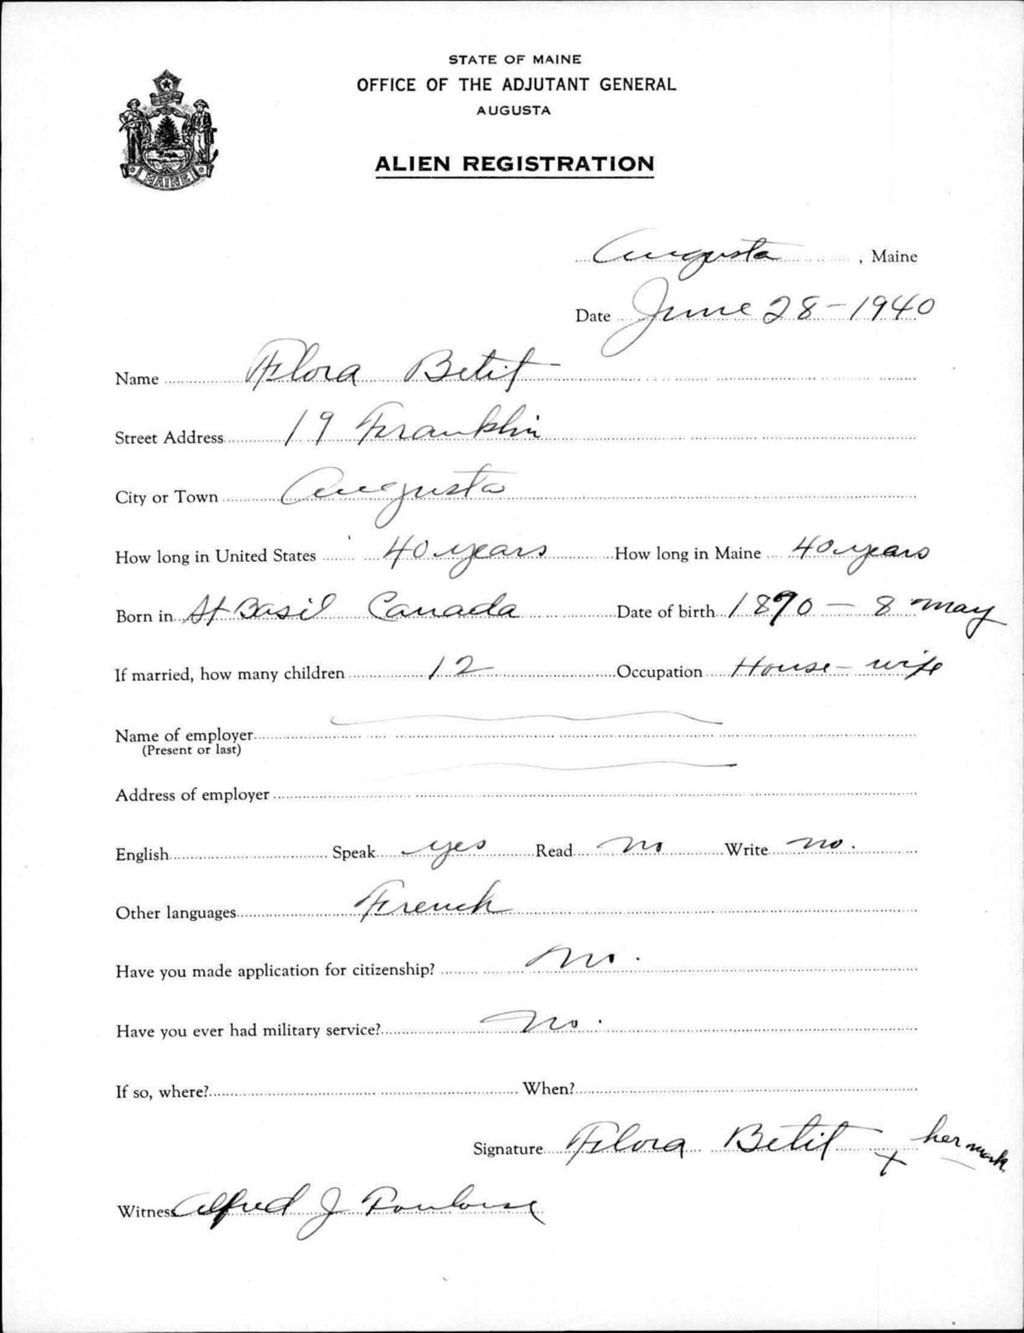 STATE OF MAINE
OFFICE OF THE ADJUTANT GENERAL
AUGUSTA
ALIEN REGISTRATION
MAINE
Augusta, Maine
Date June 28-1940
Name Flora Betit
Street Address 19 Franklin
City or Town Augusta
How long in United States 40 years How long in Maine 40 years
Born in St Basil Canada Date of birth 1890 - 8 may
If married, how many children 12 Occupation House-wife
Name of employer
(Present or last)
Address of employer
English Speak yes Read no Write no.
Other languages French
Have you made application for citizenship? no.
Have you ever had military service? no.
If so, where? When?
Signature Flora Betit x her mark
Witness Alfred J